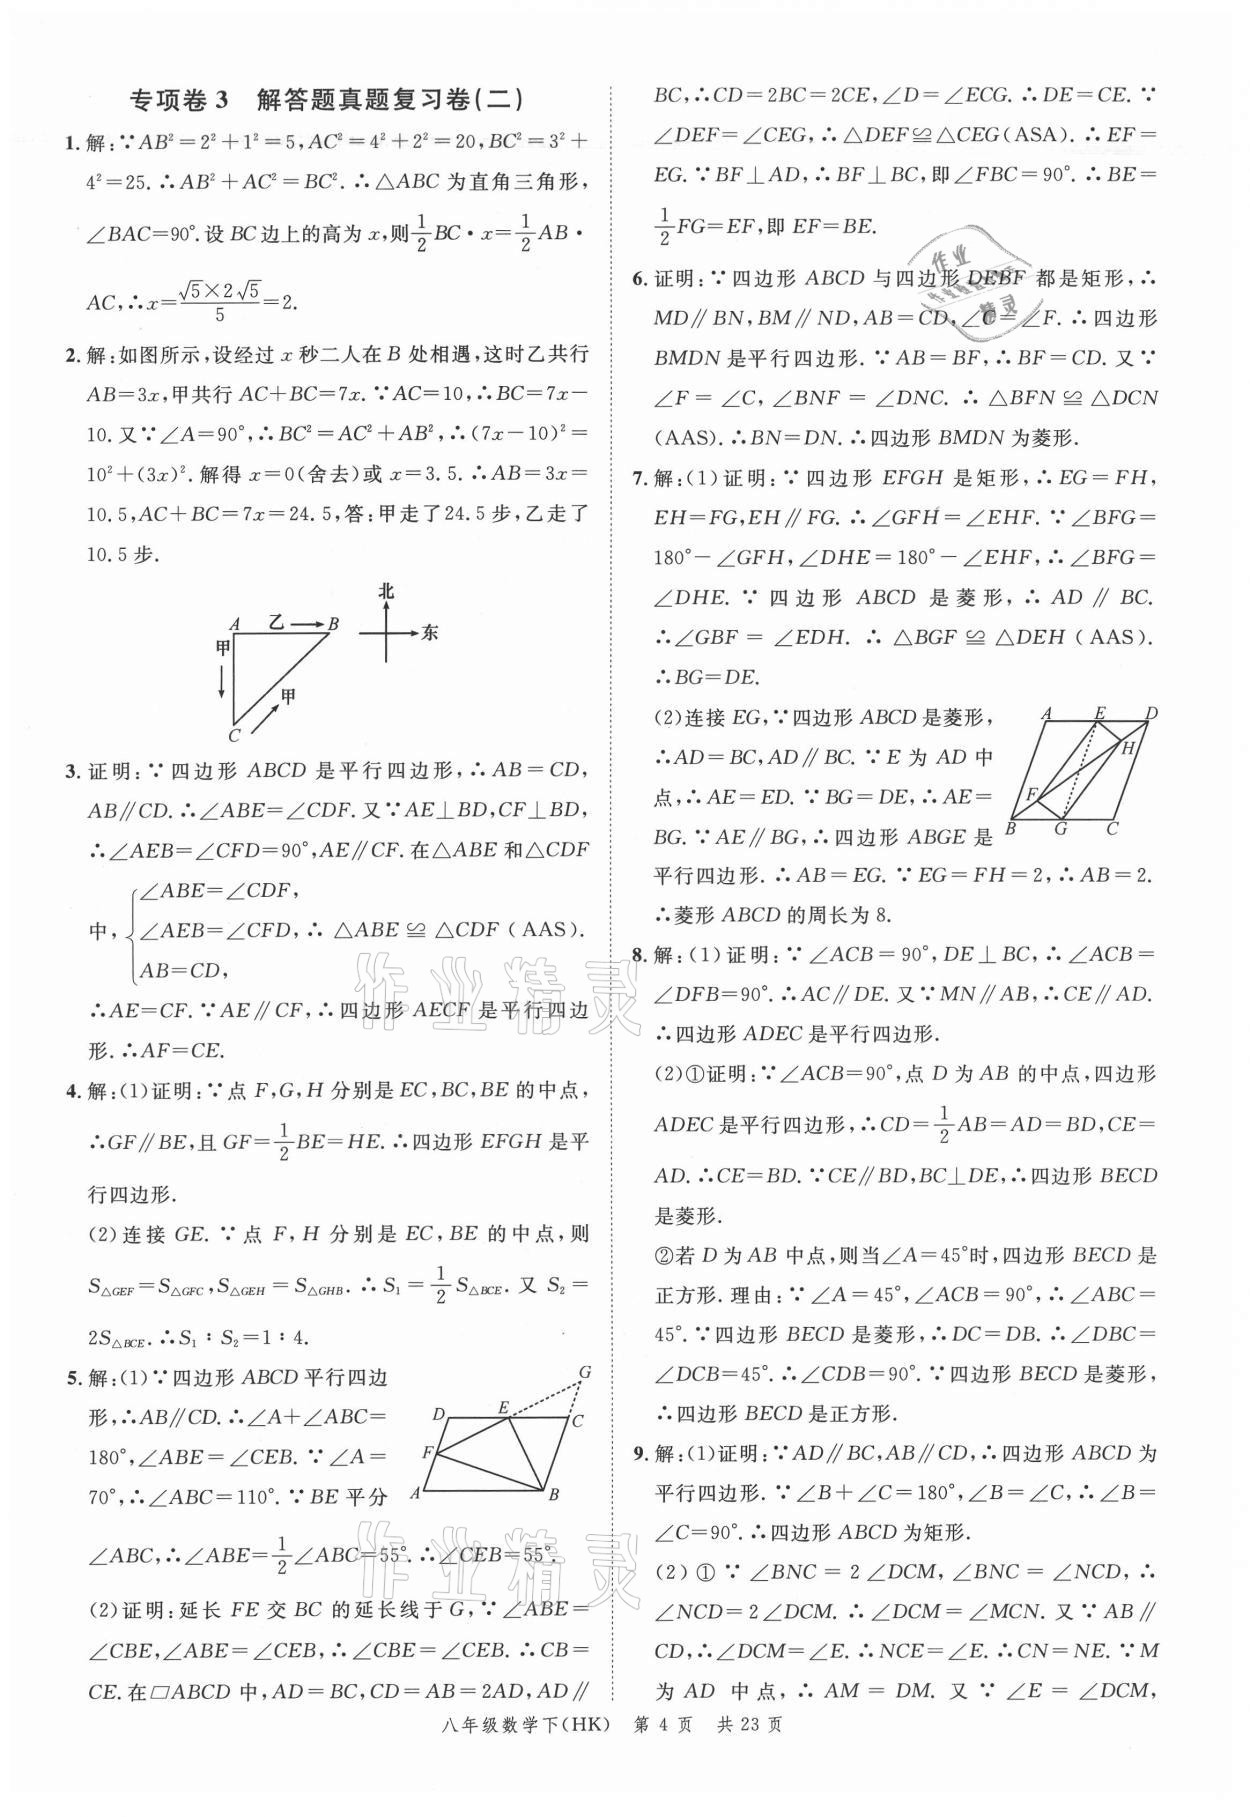 专项卷3 解答题真题复习卷(二)
1. 解:∵AB²=2²+1²=5,AC²=4²+2²=20,BC²=3²+
4²=25.∴AB²+AC²=BC².∴△ABC 为直角三角形,
∠BAC=90°.设 BC边上的高为 x,则1/2BC·x=1/2AB·
AC,∴x=(√5×2√5)/5=2.
2. 解:如图所示,设经过 x 秒二人在 B 处相遇,这时乙共行
AB=3x,甲共行 AC+BC=7x.∵AC=10,∴BC=7x-
10.又∵∠A=90°,∴BC²=AC²+AB²,∴(7x-10)²=
10²+(3x)².解得 x=0(舍去)或 x=3.5.∴AB=3x=
10.5,AC+BC=7x=24.5,答:甲走了24.5步,乙走了
10.5步.
北
A 乙 B 东
甲
甲
C
3. 证明:∵四边形 ABCD 是平行四边形,∴AB=CD,
AB∥CD.∴∠ABE=∠CDF.又∵AE⊥BD,CF⊥BD,
∴∠AEB=∠CFD=90°,AE∥CF.在△ABE 和△CDF
∠ABE=∠CDF,
中,{∠AEB=∠CFD,∴△ABE≌△CDF(AAS).
AB=CD,
∴AE=CF.∵AE∥CF,∴四边形 AECF 是平行四边
形.∴AF=CE.
4. 解:(1)证明:∵点 F,G,H 分别是 EC,BC,BE 的中点,
∴GF∥BE,且 GF=1/2BE=HE.∴四边形 EFGH 是平
行四边形.
(2)连接 GE.∵点 F,H 分别是 EC,BE 的中点,则
S△GEF=S△GFC,S△GEH=S△GHB.∴S₁=1/2S△BCE.又 S₂=
2S△BCE.∴S₁∶S₂=1∶4.
5. 解:(1)∵四边形 ABCD 平行四边
形,∴AB∥CD.∴∠A+∠ABC=
180°,∠ABE=∠CEB.∵∠A=
70°,∴∠ABC=110°.∵BE 平分
G
D E C
F
A B
∠ABC,∴∠ABE=1/2∠ABC=55°.∴∠CEB=55°.
(2)证明:延长 FE 交 BC 的延长线于 G,∵∠ABE=
∠CBE,∠ABE=∠CEB,∴∠CBE=∠CEB.∴CB=
CE.在▱ABCD 中,AD=BC,CD=AB=2AD,AD∥
BC,∴CD=2BC=2CE,∠D=∠ECG.∴DE=CE.∵
∠DEF=∠CEG,∴△DEF≌△CEG(ASA).∴EF=
EG.∵BF⊥AD,∴BF⊥BC,即∠FBC=90°.∴BE=
1/2FG=EF,即 EF=BE.
6. 证明:∵四边形 ABCD 与四边形 DEBF 都是矩形,∴
MD∥BN,BM∥ND,AB=CD,∠C=∠F.∴四边形
BMDN 是平行四边形.∵AB=BF,∴BF=CD.又∵
∠F=∠C,∠BNF=∠DNC.∴△BFN≌△DCN
(AAS).∴BN=DN.∴四边形 BMDN 为菱形.
7. 解:(1)证明:∵四边形 EFGH 是矩形,∴EG=FH,
EH=FG,EH∥FG.∴∠GFH=∠EHF.∵∠BFG=
180°-∠GFH,∠DHE=180°-∠EHF,∴∠BFG=
∠DHE.∵四边形 ABCD 是菱形,∴AD∥BC.
∴∠GBF=∠EDH.∴△BGF≌△DEH(AAS).
∴BG=DE.
(2)连接 EG,∵四边形 ABCD 是菱形,
∴AD=BC,AD∥BC.∵E 为 AD 中
点,∴AE=ED.∵BG=DE,∴AE=
BG.∵AE∥BG,∴四边形 ABGE 是
A E D
H
F
B G C
平行四边形.∴AB=EG.∵EG=FH=2,∴AB=2.
∴菱形 ABCD 的周长为8.
8. 解:(1)证明:∵∠ACB=90°,DE⊥BC,∴∠ACB=
∠DFB=90°.∴AC∥DE.又∵MN∥AB,∴CE∥AD.
∴四边形 ADEC 是平行四边形.
(2)①证明:∵∠ACB=90°,点 D 为 AB 的中点,四边形
ADEC 是平行四边形,∴CD=1/2AB=AD=BD,CE=
AD.∴CE=BD.∵CE∥BD,BC⊥DE,∴四边形 BECD
是菱形.
②若 D 为 AB 中点,则当∠A=45°时,四边形 BECD 是
正方形.理由:∵∠A=45°,∠ACB=90°,∴∠ABC=
45°.∵四边形 BECD 是菱形,∴DC=DB.∴∠DBC=
∠DCB=45°.∴∠CDB=90°.∵四边形 BECD 是菱形,
∴四边形 BECD 是正方形.
9. 解:(1)证明:∵AD∥BC,AB∥CD,∴四边形 ABCD 为
平行四边形.∵∠B+∠C=180°,∠B=∠C,∴∠B=
∠C=90°.∴四边形 ABCD 为矩形.
(2)①∵∠BNC=2∠DCM,∠BNC=∠NCD,∴
∠NCD=2∠DCM.∴∠DCM=∠MCN.又∵AB∥
CD,∴∠DCM=∠E.∴∠NCE=∠E.∴CN=NE.∵M
为 AD 中点,∴AM=DM.又∵∠E=∠DCM,
八年级数学下(HK) 第4页 共23页
作业精灵
作业精灵
作业
精灵